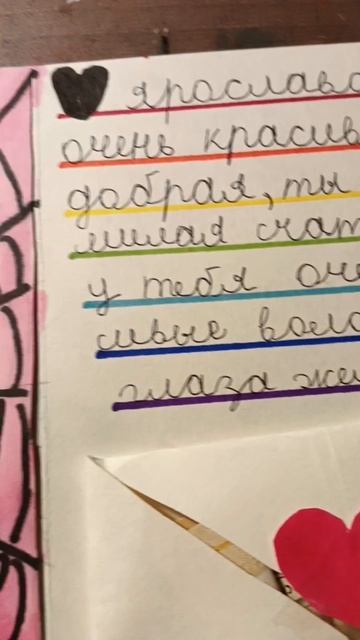 Ярослава
очень красив
добрая, ты
милая счат
у тебя оче
сивые воло
глаза же